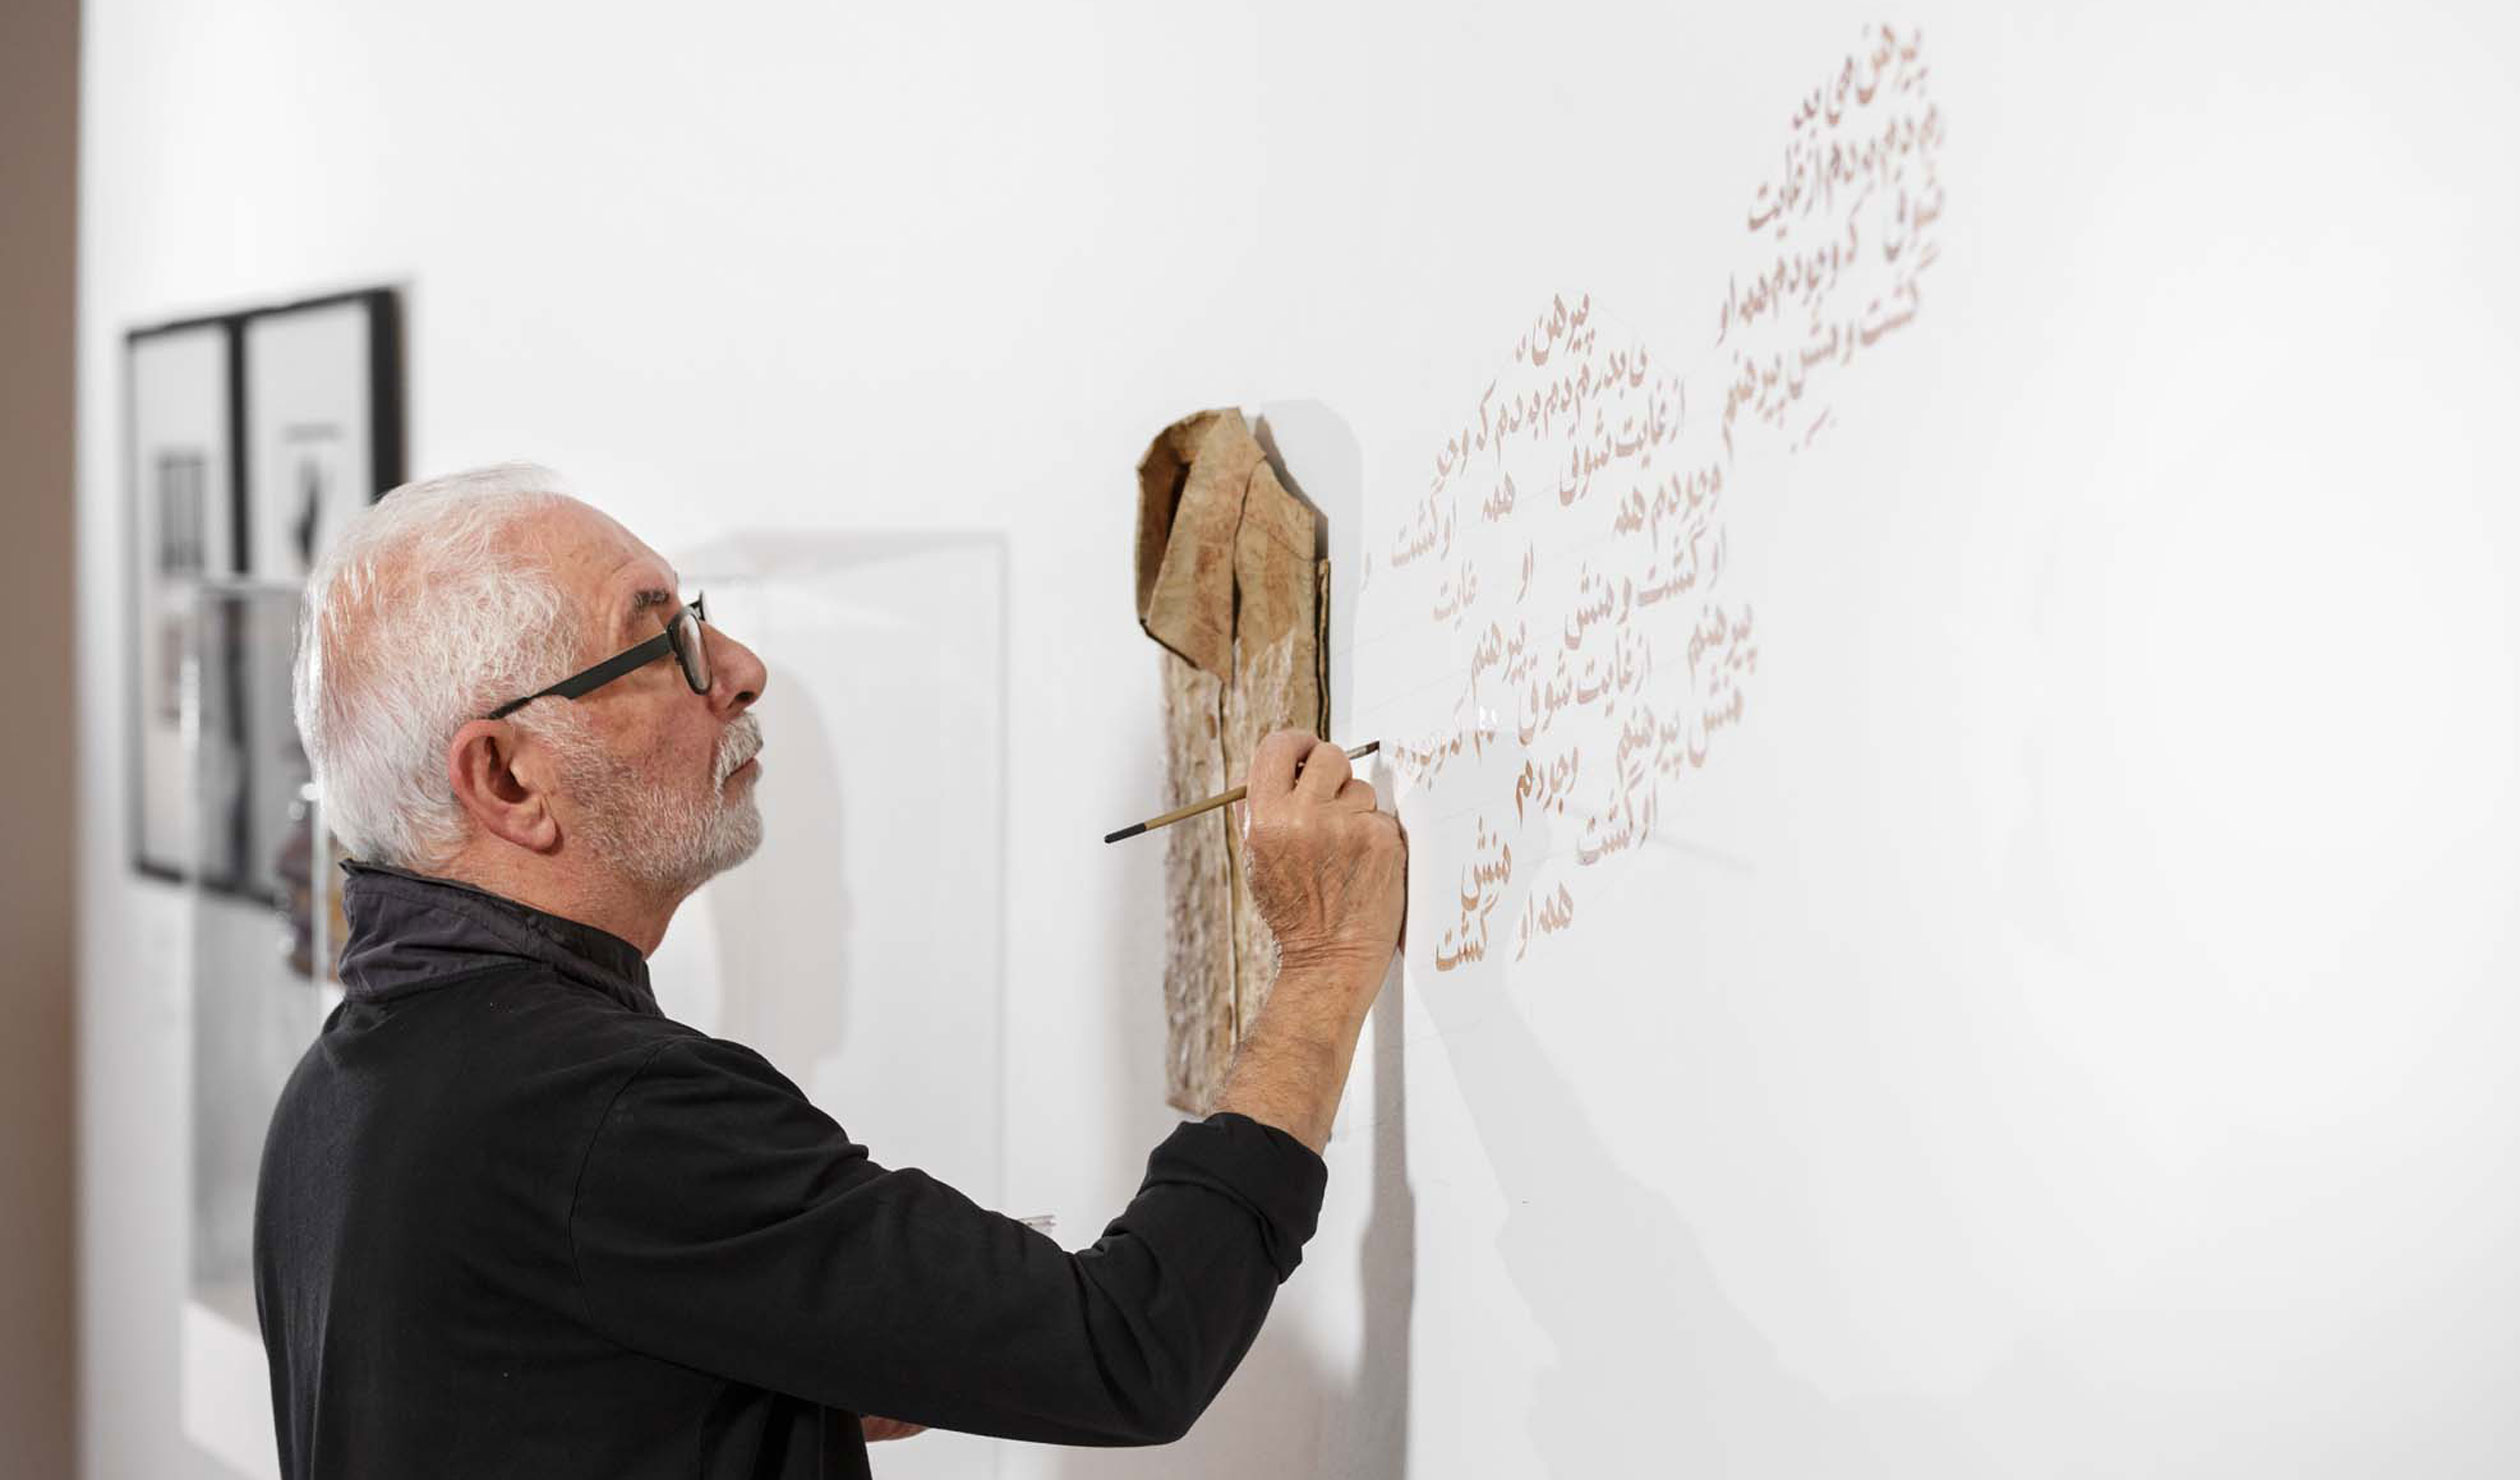 پیرهن می بد
رم دم بدم از غایت
شوق که وجودم همه او
گشت و منش پیرهنم
پیرهن م
ی بدرم دم بدم که وجو
از غایت شوق همه او گشت و
وجودم همه او غایت
او گشت و منش پیرهنم
پیرهنم از غایت شوق دم که وجودم
منش پیرهنم وجودم
او گشت منش
همه او گشت